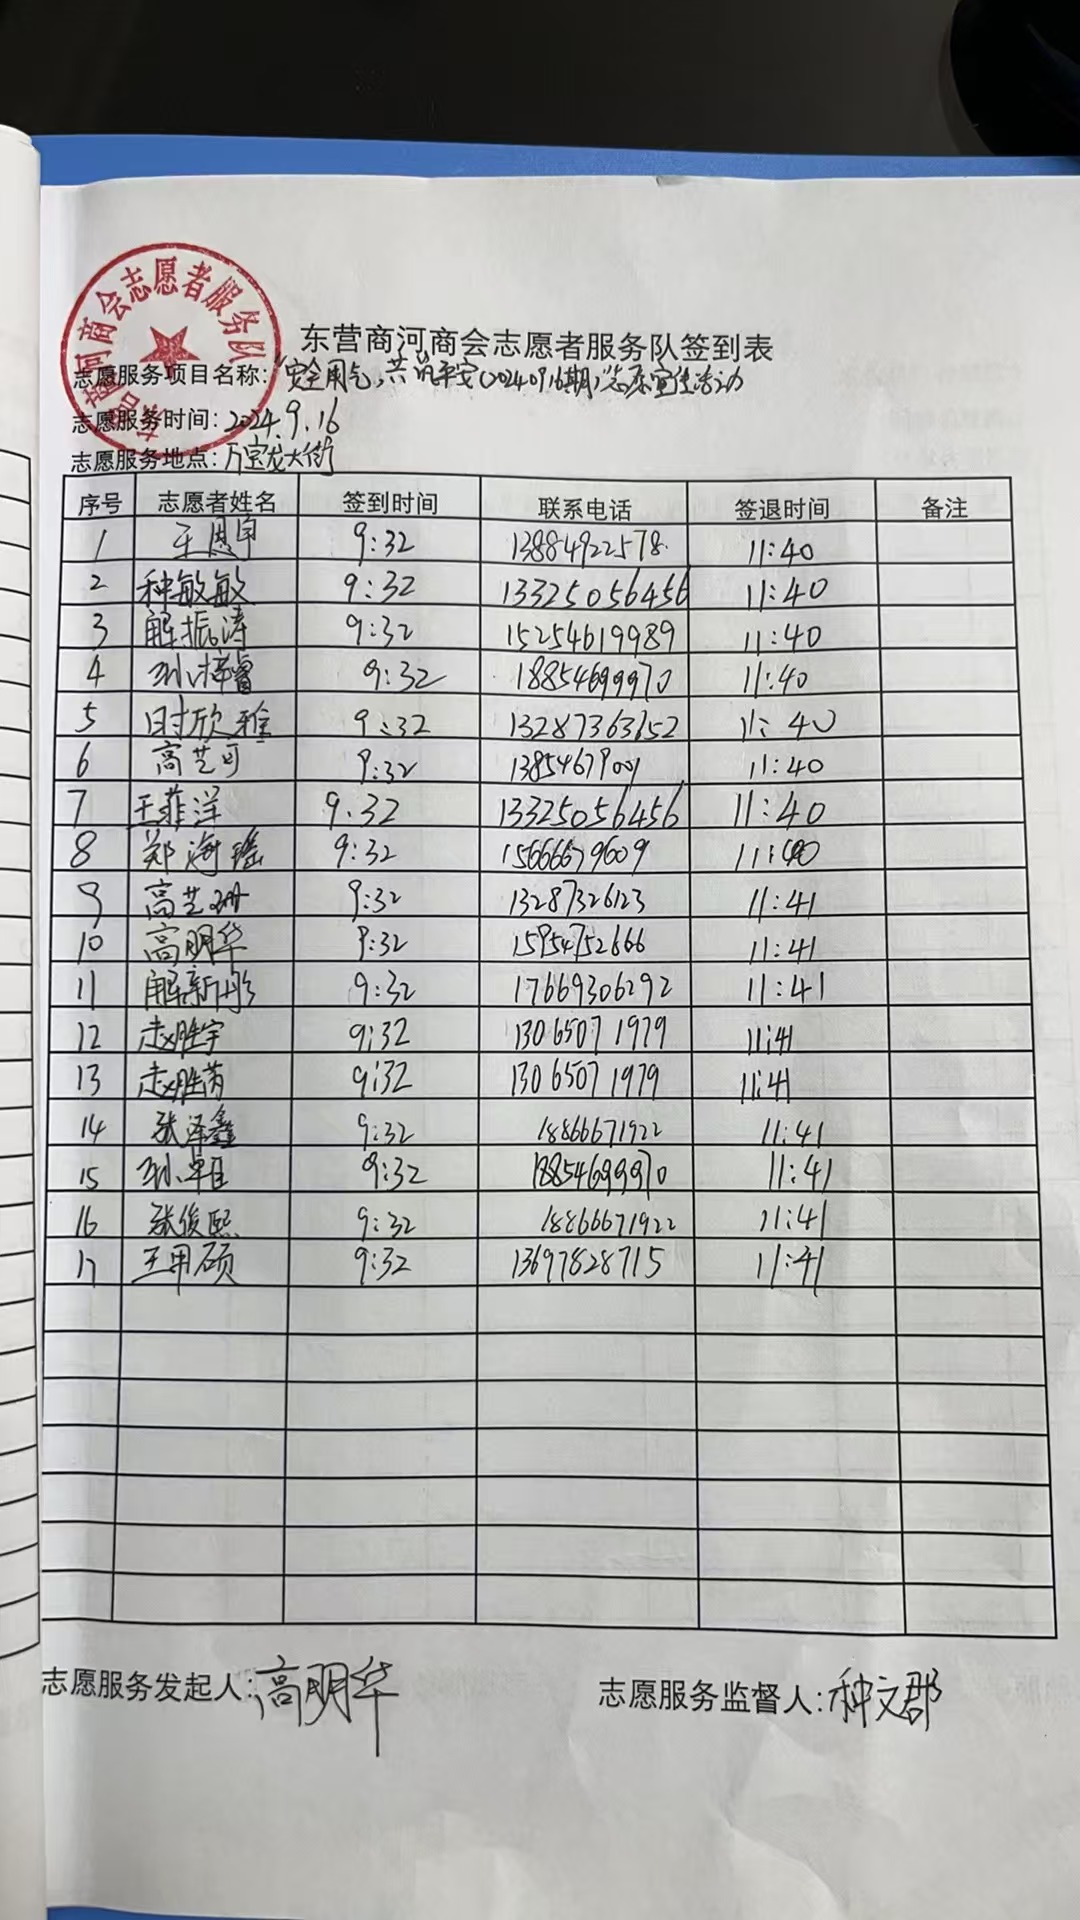 东营商河商会志愿者服务队
东营商河商会志愿者服务队签到表
志愿服务项目名称:“安全用气,共筑平安(20240916期)”志愿宣传活动
志愿服务时间:2024.9.16
志愿服务地点:万宝龙大街
序号 志愿者姓名 签到时间 联系电话 签退时间 备注
1 王恩申 9:32 13884922578 11:40
2 种敏敏 9:32 13325056456 11:40
3 解振涛 9:32 15254619989 11:40
4 孙梓睿 9:32 18854699970 11:40
5 时欣雅 9:32 13287363652 11:40
6 高艺可 9:32 13854679001 11:40
7 王菲洋 9:32 13325056456 11:40
8 郑海瑶 9:32 15666679609 11:40
9 高艺珊 9:32 13287326123 11:41
10 高明华 9:32 15954752666 11:41
11 解新彤 9:32 17669306292 11:41
12 赵胜宇 9:32 13065071979 11:41
13 赵胜芮 9:32 13065071979 11:41
14 张泽鑫 9:32 18866671922 11:41
15 孙卓 9:32 18854699970 11:41
16 张俊熙 9:32 18866671922 11:41
17 王甲硕 9:32 13697828715 11:41
志愿服务发起人:高明华 志愿服务监督人:种文郡